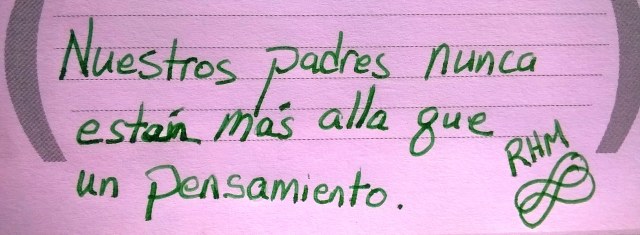 Nuestros padres nunca
están más alla que
un pensamiento.
RHM